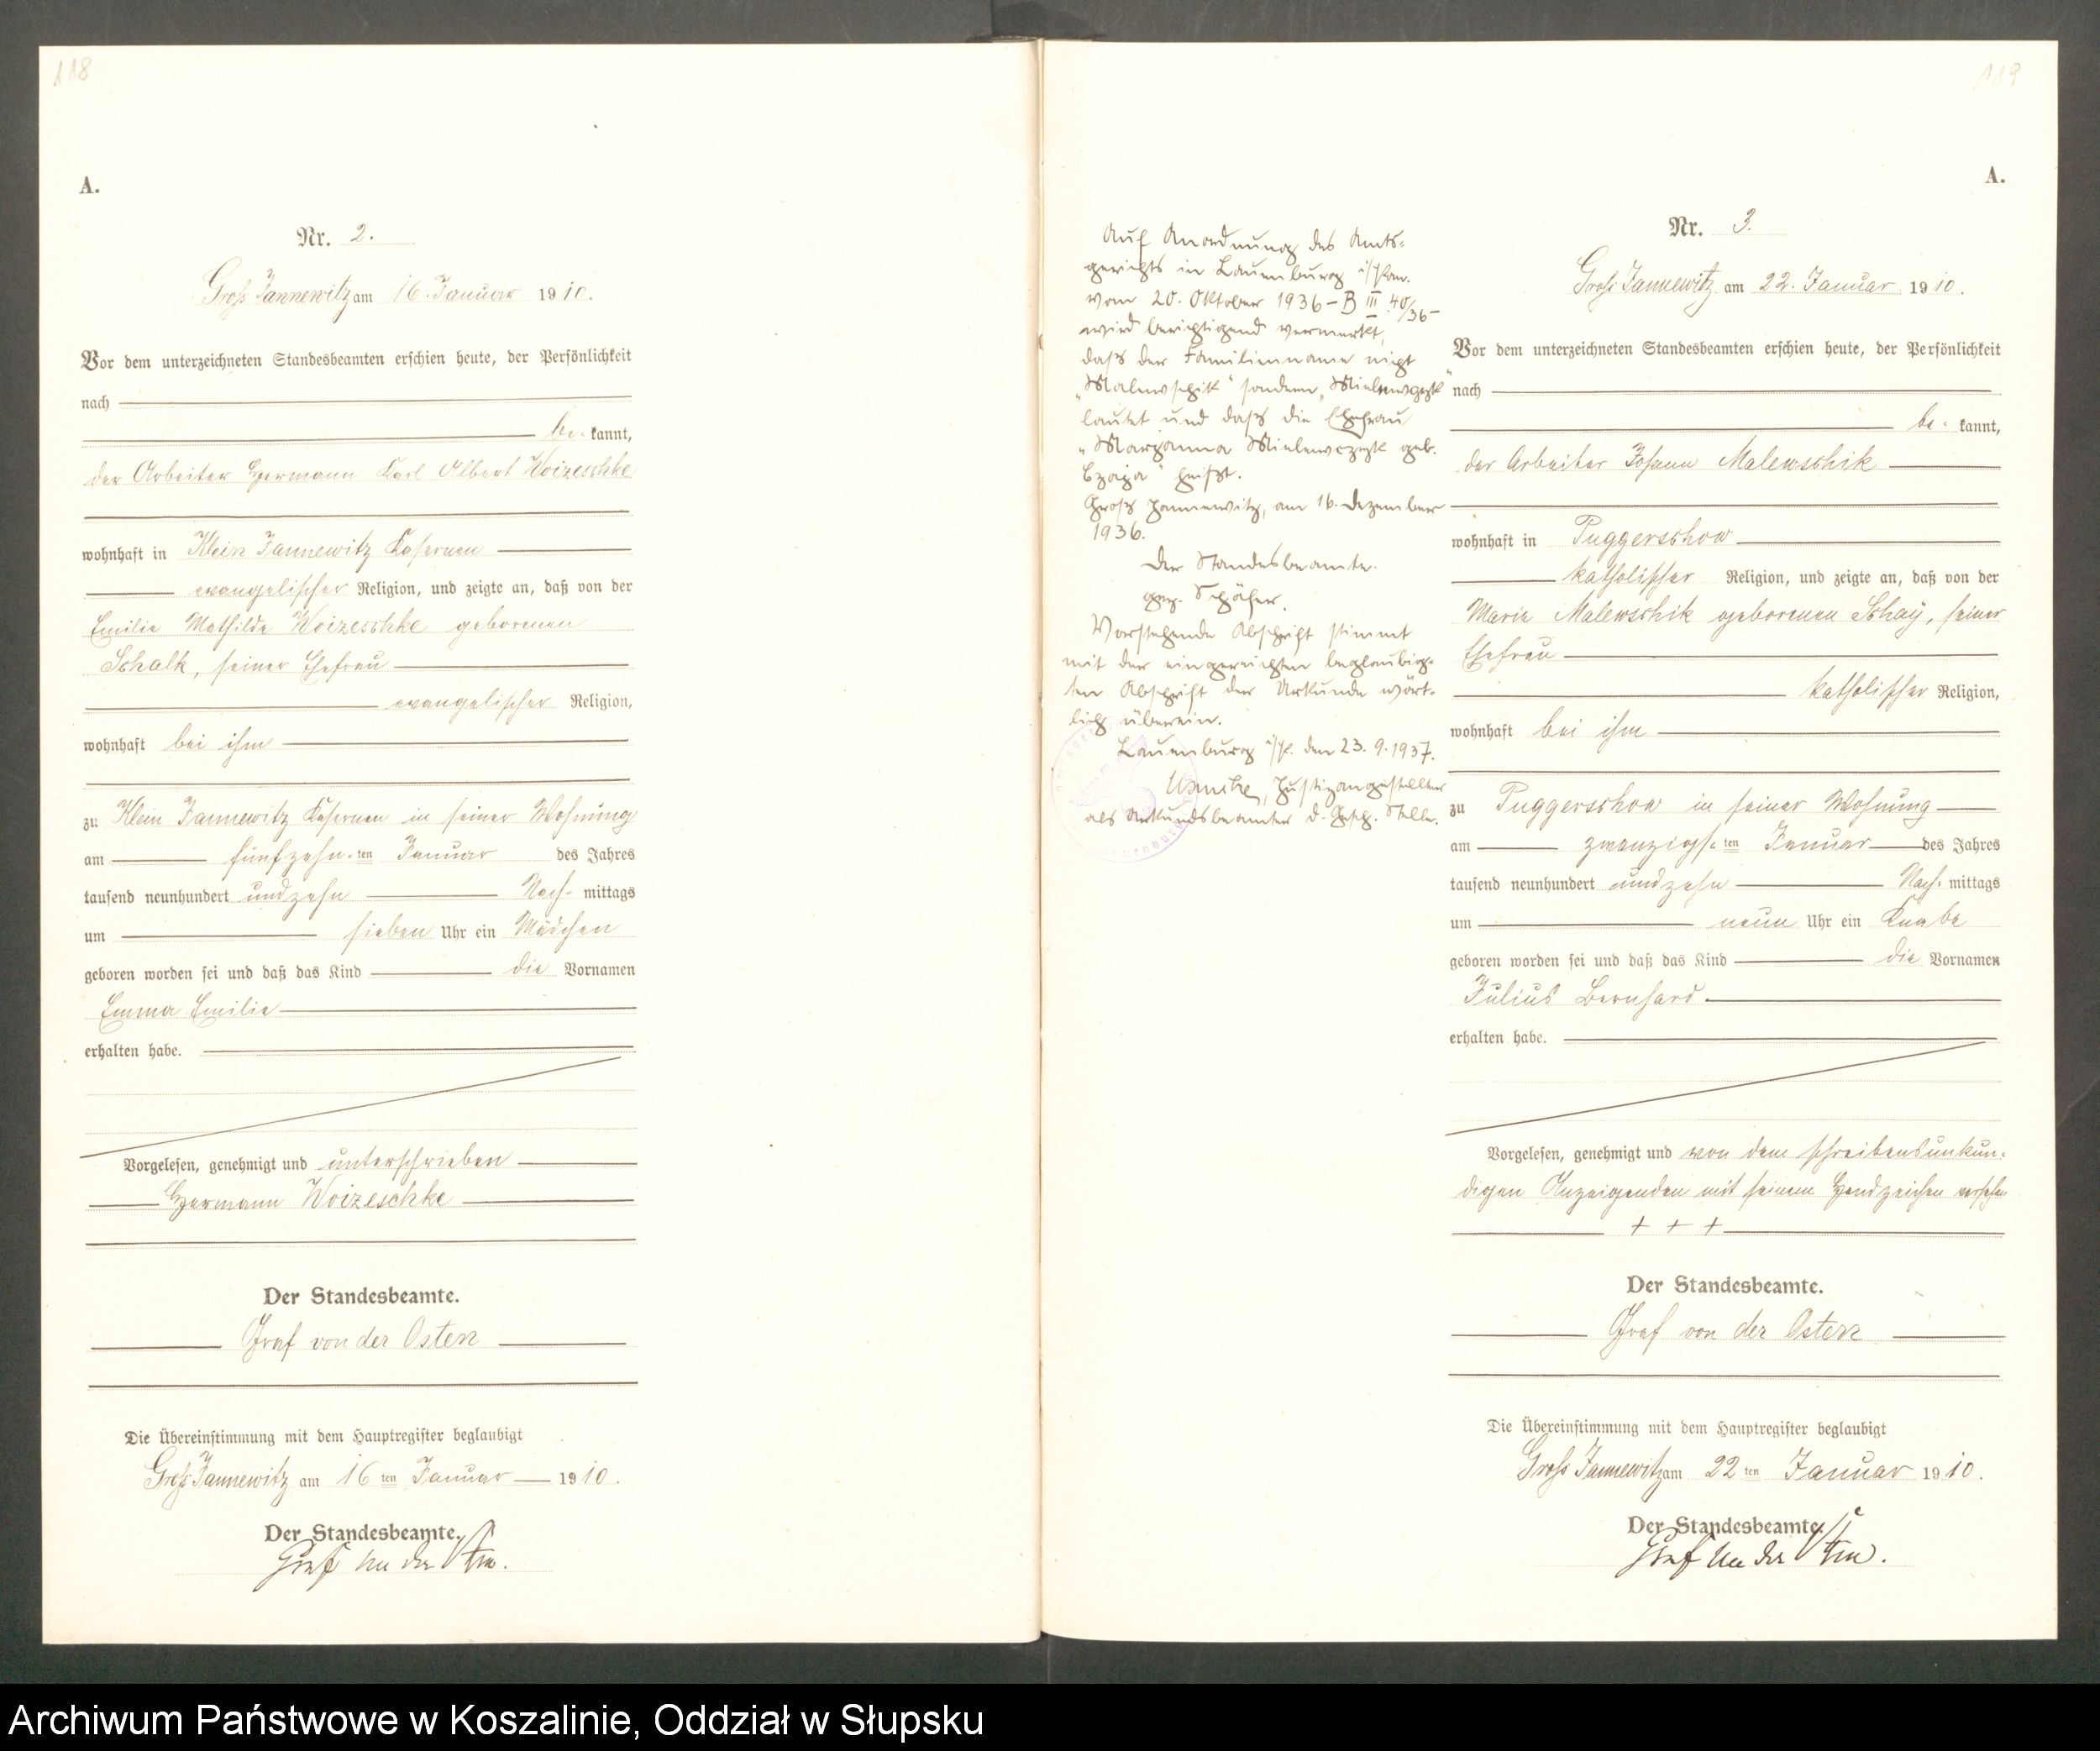 118
A.
Nr. 2.
Gross Jannewitz am 16. Januar 1910.
Vor dem unterzeichneten Standesbeamten erschien heute, der Persönlichkeit
nach
be- kannt,
der Arbeiter Hermann Karl Albert Woizeschke
wohnhaft in Klein Jannewitz Kasernen
evangelischer Religion, und zeigte an, daß von der
Emilie Mathilde Woizeschke geborenen
Schalk, seiner Ehefrau
evangelischer Religion,
wohnhaft bei ihm
zu Klein Jannewitz Kasernen in seiner Wohnung
am fünfzehn-ten Januar des Jahres
tausend neunhundert undzehn Nach- mittags
um sieben Uhr ein Mädchen
geboren worden sei und daß das Kind die Vornamen
Emma Emilie
erhalten habe.
Vorgelesen, genehmigt und unterschrieben
Hermann Woizeschke
Der Standesbeamte.
Graf von der Osten
Die Übereinstimmung mit dem Hauptregister beglaubigt
Gross Jannewitz am 16ten Januar 1910.
Der Standesbeamte.
Graf von der Osten.
119
A.
Auf Anordnung des Amts-
gerichts in Lauenburg i/Pom.
vom 20. Oktober 1936 – B III 40/36 –
wird berichtigend vermerkt,
daß der Familienname nicht
„Malewschik" sondern „Mielewczyk"
lautet und daß die Ehefrau
„Marianna Mielewczyk geb.
Czaja" heißt.
Groß Jannewitz, am 16. Dezember
1936.
Der Standesbeamte.
gez. Schäfer.
Vorstehende Abschrift stimmt
mit der eingereichten beglaubig-
ten Abschrift der Urkunde wört-
lich überein.
Lauenburg i/P. den 23. 9. 1937.
Justizangestellter
als Urkundsbeamter d. Gesch. Stelle.
Nr. 3.
Gross Jannewitz am 22. Januar 1910.
Vor dem unterzeichneten Standesbeamten erschien heute, der Persönlichkeit
nach
be- kannt,
der Arbeiter Johann Malewschik
wohnhaft in Puggerschow
katholischer Religion, und zeigte an, daß von der
Marie Malewschik geborenen Schay, seiner
Ehefrau
katholischer Religion,
wohnhaft bei ihm
zu Puggerschow in seiner Wohnung
am zwanzigs-ten Januar des Jahres
tausend neunhundert undzehn Nach- mittags
um neun Uhr ein Knabe
geboren worden sei und daß das Kind die Vornamen
Julius Bernhard
erhalten habe.
Vorgelesen, genehmigt und von dem schreibensunkun-
digen Anzeigenden mit seinem Handzeichen versehen
+ + +
Der Standesbeamte.
Graf von der Osten
Die Übereinstimmung mit dem Hauptregister beglaubigt
Gross Jannewitz am 22ten Januar 1910.
Der Standesbeamte.
Graf von der Osten.
Archiwum Państwowe w Koszalinie, Oddział w Słupsku